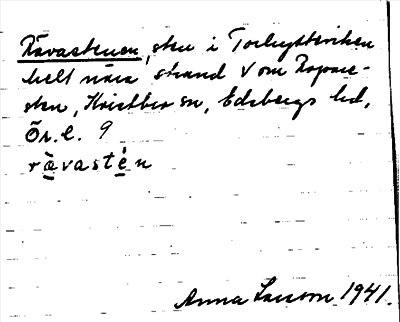 Rävastenen, sten i Torhyttviken
helt nära strand V om Ropare-
sten, Kvistbro sn, Edsbergs hd,
Ör. l. 9
rävastén
Anna Larsson 1941.